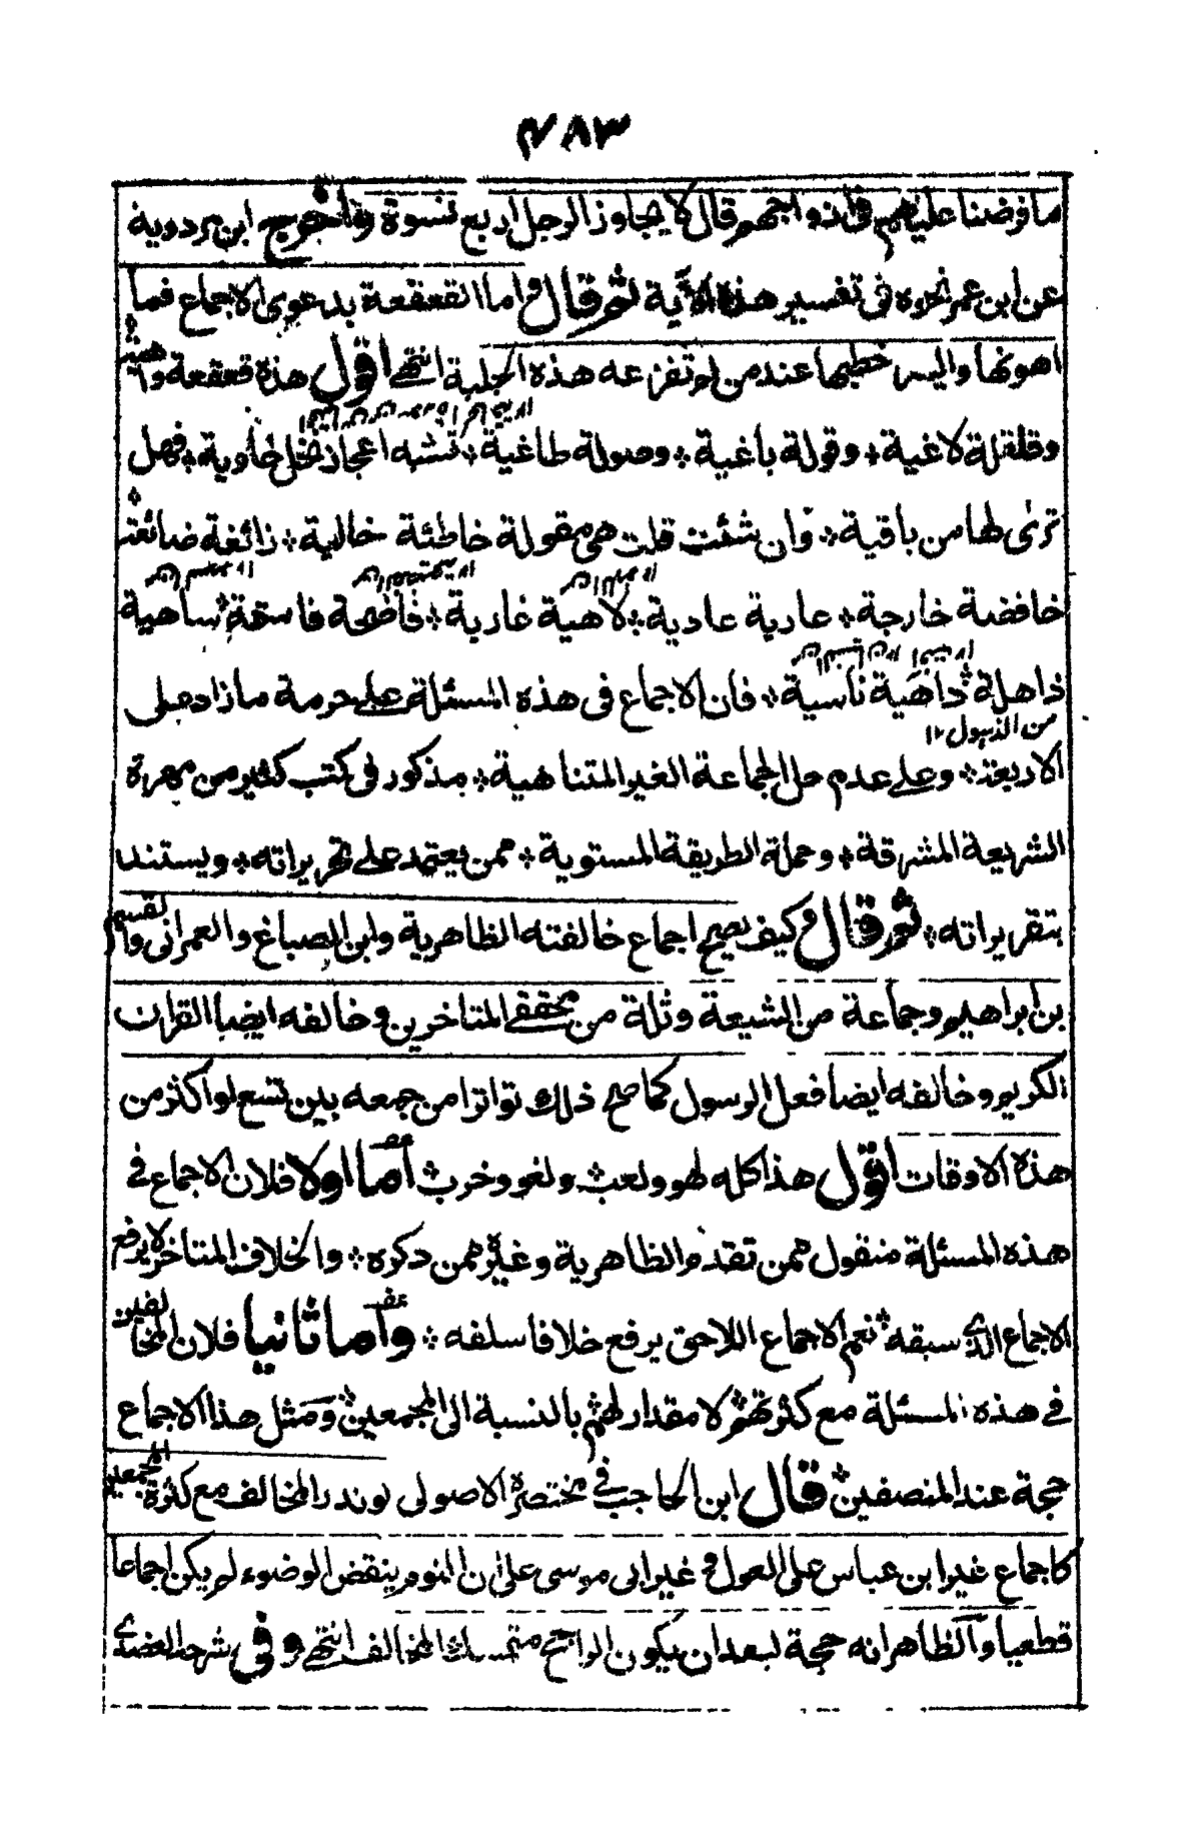 ٤٨٣
ما فرضنا عليهم في ازواجهم قال لا يجاوز الرجل اربع نسوة واخرج ابن مردوية
عن ابن عمر نحوه في تفسير هذه الآية ثم قال واما القعقعة بدعوى الاجماع فما
اهونها وايسر خطبها عند من لم تفزعه هذه الجلبة انتهى اقول هذه قعقعة واهية
وقلقلة لاغية وقولة باغية وصولة طاغية تشبه اعجاز نخل خاوية فهل
ترى لها من باقية وان شئت قلت هي مقولة خاطئة خالية زائغة ضائعة
خافضة خارجة عارية عادية لاهية غاربة فاضحة فاسقة ساهية
ذاهلة داهية ناسية فان الاجماع في هذه المسئلة على حرمة ما زاد على
من الذهول ١٢
الاربعة وعلى عدم حل الجماعة الغير المتناهية مذكور في كتب كثير من مهرة
الشريعة المشرقة وحملة الطريقة المستوية ممن يعتمد على تحريراته ويستند
بتقريراته ثم قال وكيف يصح اجماع خالفته الظاهرية وابن الصباغ والعمراني والقسم
بن ابراهيم وجماعة من الشيعة وثلة من محققي المتاخرين وخالفه ايضا القران
الكريم وخالفه ايضا فعل الرسول كما صح ذلك تواترا من جمعه بين تسع او اكثر من
هذه الاوقات اقول هذا كله لهو ولعب ولغو وخرب اما اولا فلان الاجماع في
هذه المسئلة منقول ممن تقدم الظاهرية وغيرهم من ذكره والخلاف المتاخر لا يرفع
الاجماع الذي سبقه نعم الاجماع اللاحق يرفع خلافا سلفه واما ثانيا فلان المخالفين
في هذه المسئلة مع كثرتهم لا مقدار لهم بالنسبة الى المجمعين ومثل هذا الاجماع
حجة عند المنصفين قال ابن الحاجب في مختصره الاصولي لو ندر المخالف مع كثرة المجمعين
كاجماع غير ابن عباس على العول وغير ابي موسى على ان النوم ينقض الوضوء لم يكن اجماعا
قطعيا والظاهر انه حجة لبعد ان يكون الراجح متمسك المخالف انتهى وفي شرحه العضدي